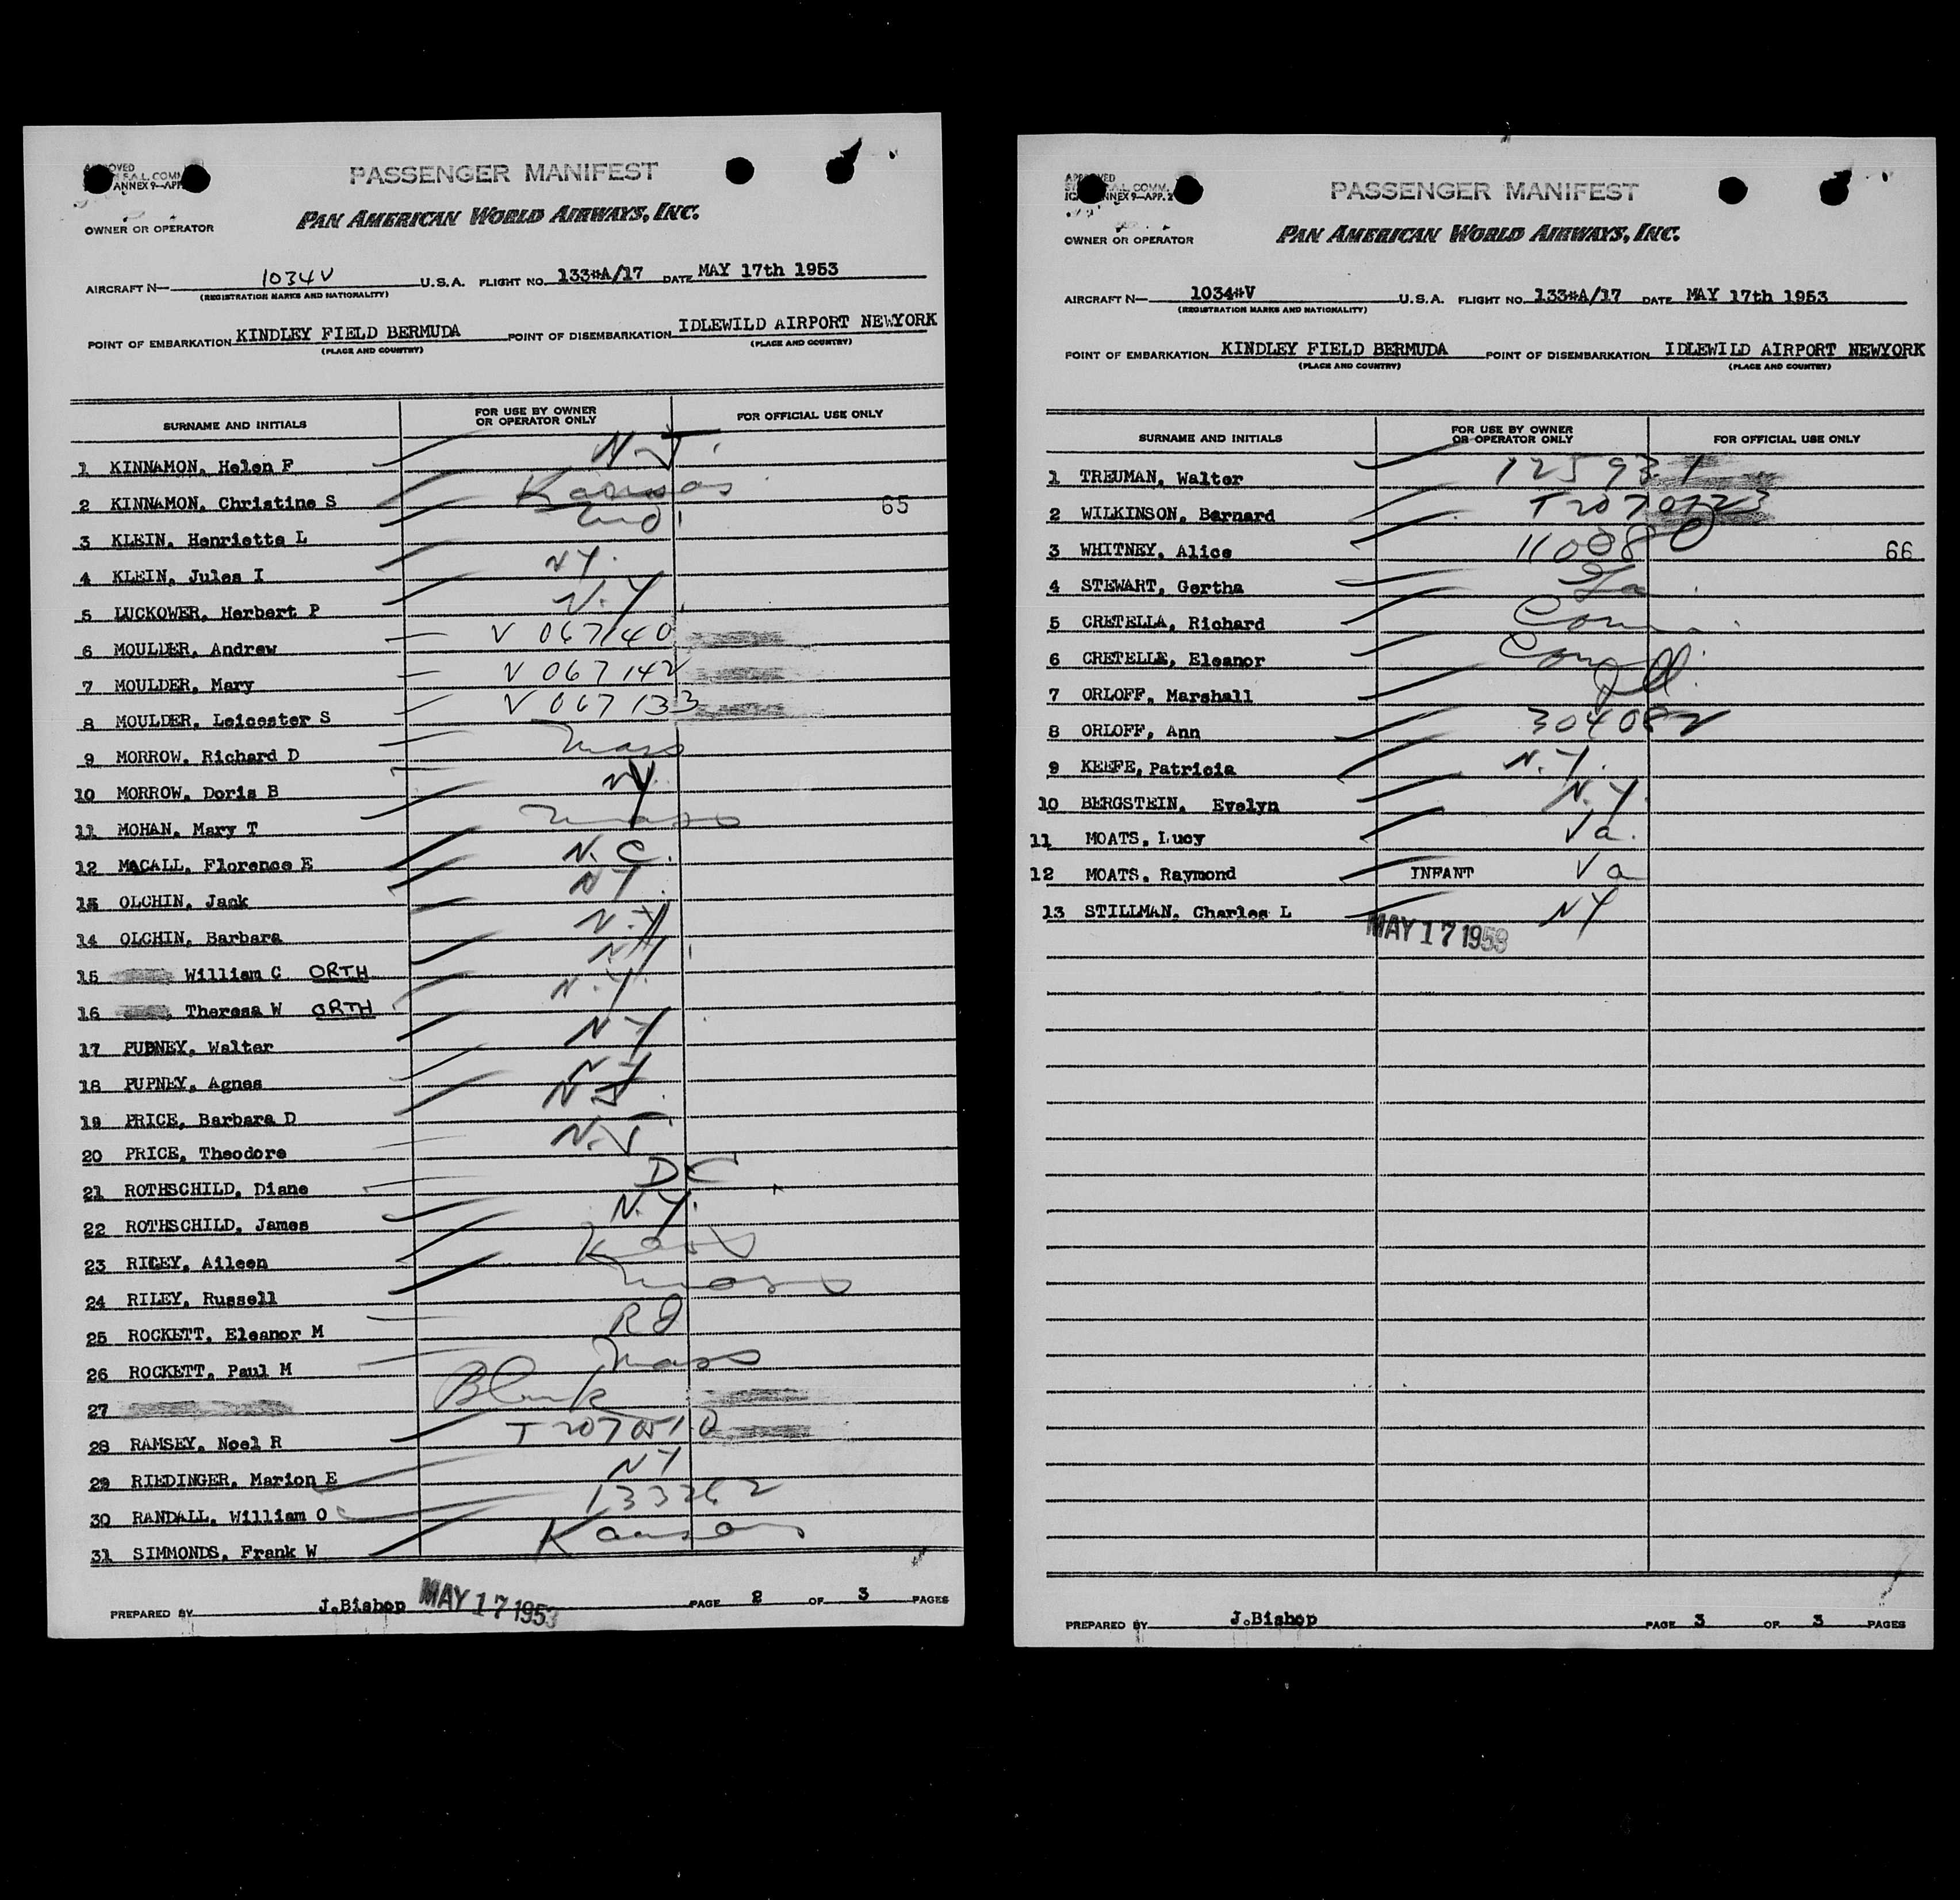 PASSENGER MANIFEST
PAN AMERICAN WORLD AIRWAYS, INC.
OWNER OR OPERATOR
AIRCRAFT N— 1034V U.S.A. FLIGHT NO. 133#A/17 DATE MAY 17th 1953
(REGISTRATION MARKS AND NATIONALITY)
POINT OF EMBARKATION KINDLEY FIELD BERMUDA POINT OF DISEMBARKATION IDLEWILD AIRPORT NEWYORK
(PLACE AND COUNTRY) (PLACE AND COUNTRY)
SURNAME AND INITIALS FOR USE BY OWNER OR OPERATOR ONLY FOR OFFICIAL USE ONLY
1 KINNAMON, Helen F N.J.
2 KINNAMON, Christine S Kansas 65
3 KLEIN, Henrietta L
4 KLEIN, Jules I N.Y.
5 LUCKOWER, Herbert P N.Y.
6 MOULDER, Andrew V 067140
7 MOULDER, Mary V 067142
8 MOULDER, Leicester S V 067133
9 MORROW, Richard D Mass
10 MORROW, Doris B N.Y.
11 MOHAN, Mary T Mass
12 MACALL, Florence E N.C.
13 OLCHIN, Jack NY
14 OLCHIN, Barbara N.Y.
15 William C ORTH N.Y.
16 Theresa W ORTH N.Y.
17 PUDNEY, Walter NY
18 PUPNEY, Agnes
19 PRICE, Barbara D N.J.
20 PRICE, Theodore N.J.
21 ROTHSCHILD, Diane DC
22 ROTHSCHILD, James N.Y.
23 RILEY, Aileen
24 RILEY, Russell Mass
25 ROCKETT, Eleanor M RI
26 ROCKETT, Paul M Mass
27 Blank
28 RAMSEY, Noel R T 2070510
29 RIEDINGER, Marion E NY
30 RANDALL, William O 133262
31 SIMMONDS, Frank W Kansas
PREPARED BY J.Bishop MAY 17 1953 PAGE 2 OF 3 PAGES
PASSENGER MANIFEST
PAN AMERICAN WORLD AIRWAYS, INC.
OWNER OR OPERATOR
AIRCRAFT N— 1034#V U.S.A. FLIGHT NO. 133#A/17 DATE MAY 17th 1953
(REGISTRATION MARKS AND NATIONALITY)
POINT OF EMBARKATION KINDLEY FIELD BERMUDA POINT OF DISEMBARKATION IDLEWILD AIRPORT NEWYORK
(PLACE AND COUNTRY) (PLACE AND COUNTRY)
SURNAME AND INITIALS FOR USE BY OWNER OR OPERATOR ONLY FOR OFFICIAL USE ONLY
1 TREUMAN, Walter 125931
2 WILKINSON, Bernard
3 WHITNEY, Alice 110880 66
4 STEWART, Gertha
5 CRETELLA, Richard Conn.
6 CRETELLE, Eleanor Conn
7 ORLOFF, Marshall Ill.
8 ORLOFF, Ann 304082
9 KEEFE, Patricia N.Y.
10 BERGSTEIN, Evelyn N.Y.
11 MOATS, Lucy Va.
12 MOATS, Raymond INFANT Va
13 STILLMAN, Charles L NY
MAY 17 1953
PREPARED BY J.Bishop PAGE 3 OF 3 PAGES